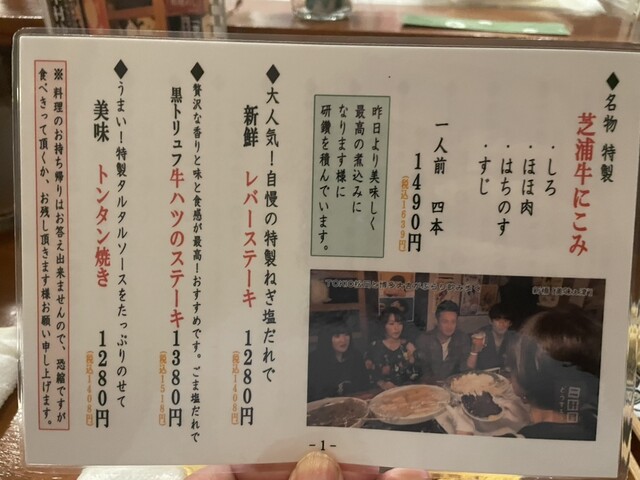 ◆名物 特製
芝浦牛にこみ
・しろ
・ほほ肉
・はちのす
・すじ
一人前 四本
1490円
(税込1639円)
昨日より美味しく
最高の煮込みに
なります様に
研鑽を積んでいます。
◆大人気!自慢の特製ねぎ塩だれで
新鮮 レバーステーキ 1280円
(税込1408円)
◆贅沢な香りと味と食感が最高ーおすすめです。ごま塩だれで
黒トリュフ牛ハツのステーキ1380円
(税込1518円)
◆うまい!特製タルタルソースをたっぷりのせて
美味 トンタン焼き 1280円
(税込1408円)
※料理のお持ち帰りはお答え出来ませんので、恐縮ですが
食べきって頂くか、お残し頂きます様お願い申し上げます。
-1-